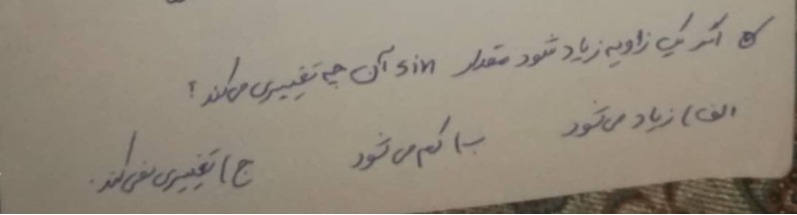 اگر یک زاویه زیاد شود مقدار sin آن چه تغییری می‌کند؟
الف) زیاد می‌شود ب) کم می‌شود ج) تغییری نمی‌کند.